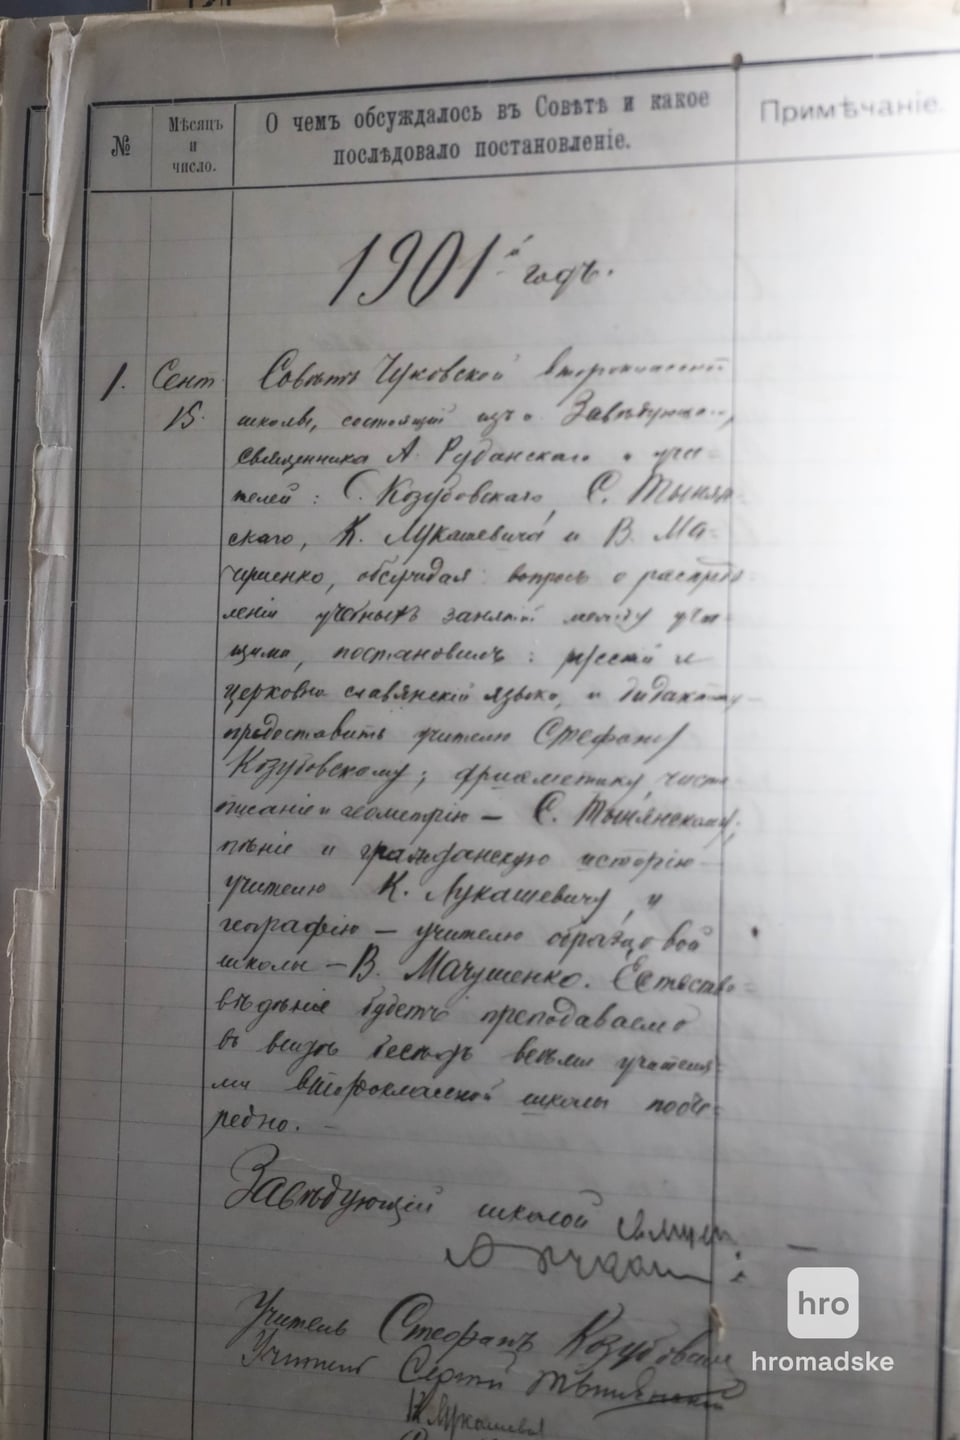 №
Мѣсяцъ
и
число.
О чемъ обсуждалось въ Совѣтѣ и какое
послѣдовало постановленіе.
Примѣчаніе.
1901й годъ.
1. Сент. Совѣтъ Чуковской второклассной
15. школы, состоящій изъ Завѣдующаго,
священника А. Руданскаго и учи-
телей: С. Козубовскаго, С. Тынян-
скаго, К. Лукашевича и В. Ма-
чушенко, обсуждая вопросъ о распредѣ-
леніи учебныхъ занятій между уча-
щими, постановилъ: русскій и
церковно славянскій языки, и дидактику
предоставить учителю Стефану
Козубовскому; ариѳметику, чисто-
писаніе и геометрію — С. Тынянскому;
пѣніе и гражданскую исторію —
учителю К. Лукашевичу, и
географію — учителю образцовой
школы — В. Мачушенко. Естество-
вѣдѣніе будетъ преподаваемо
въ видѣ бесѣдъ всѣми учителя-
ми второклассной школы пооче-
редно.
Завѣдующій школой
А Рудан
Учитель Стефанъ Козубовскій
Учитель Сергій Тынянскій
К Лукашевичъ